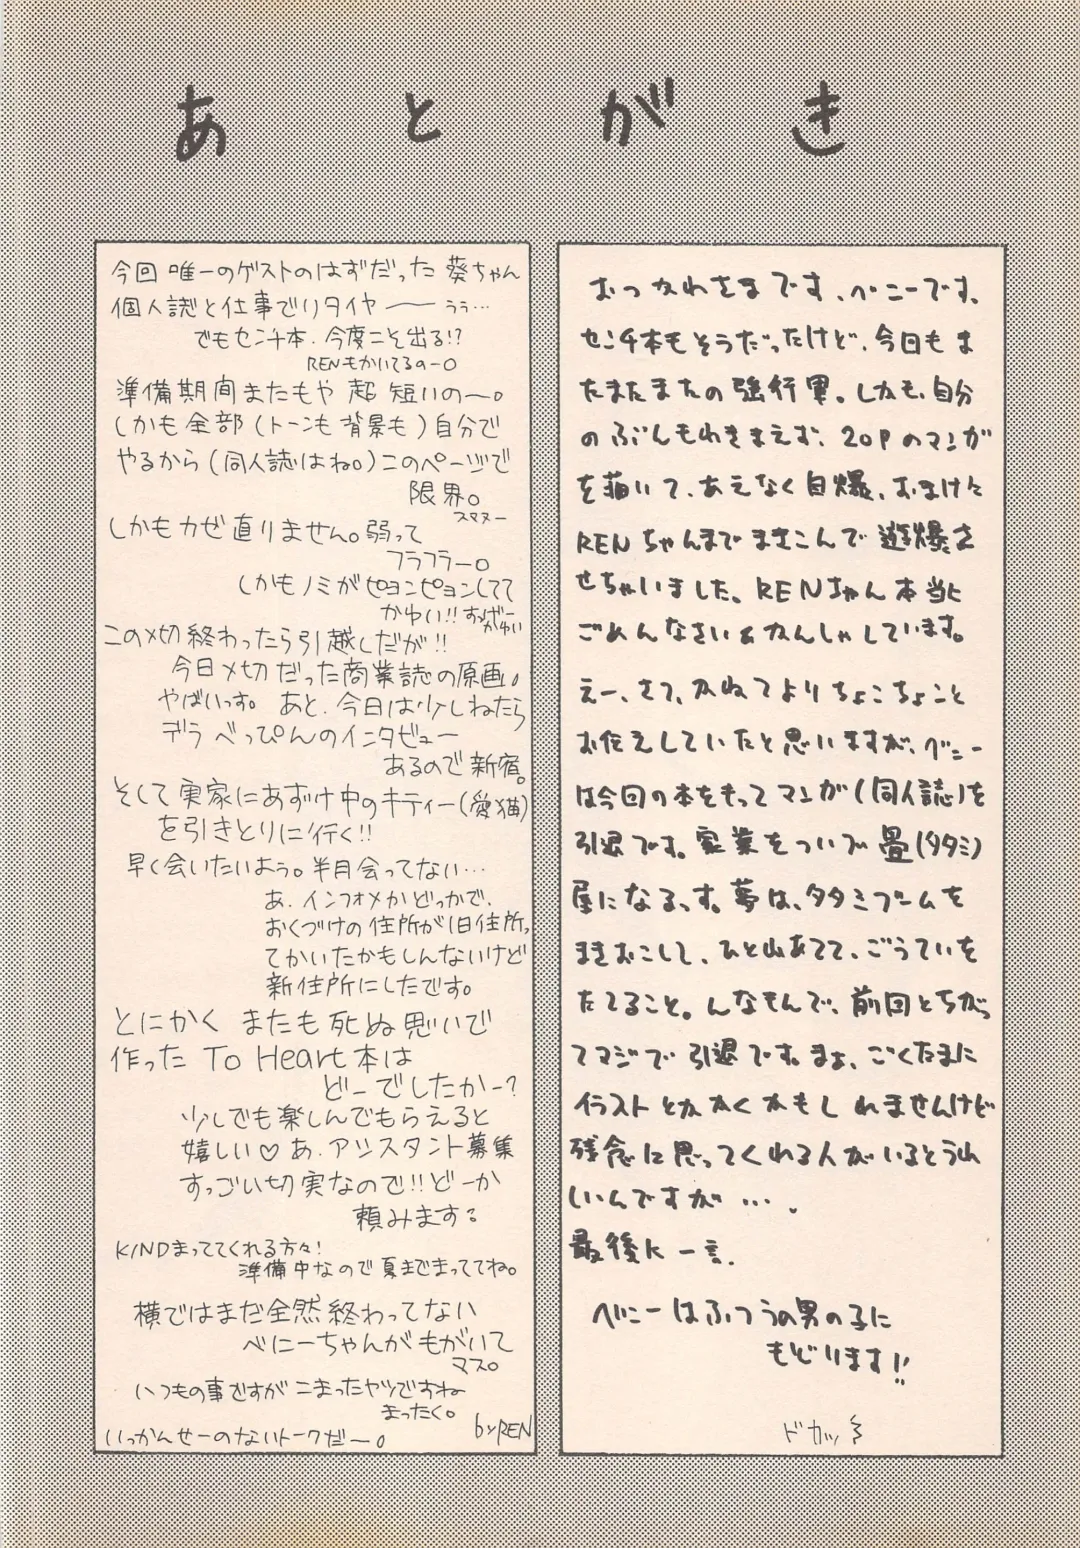 あとがき
今回 唯一のゲストのはずだった 葵ちゃん
個人誌と仕事でリタイヤ―― うぅ…
でもセンチ本、今度こそ出る!?
RENもかいてるのー。
準備期間またもや 超 短いの〜。
しかも全部(トーンも背景も)自分で
やるから(同人誌はね。)このページで
限界。
スマヌー
しかもカゼ直りません。弱って
フラフラー。
しかもノミがピョンピョンしてて
かゆい!!すっげーかゆい
この〆切終わったら引越しだが!!
今日〆切だった商業誌の原画。
やばいっす。あと、今日は少しねたら
デラべっぴんのインタビュー
あるので新宿。
そして実家にあずけ中のキティー(愛猫)
を引きとりに行く!!
早く会いたいよう。半月会ってない…
あ、インフォメかどっかで、
おくづけの住所が旧住所っ
てかいたかもしんないけど
新住所にしたです。
とにかく またも死ぬ思いで
作った To Heart本は
どーでしたかー?
少しでも楽しんでもらえると
嬉しい♡ あ、アシスタント募集
すっごい切実なので!!どーか
頼みます。
KINDまっててくれる方々!
準備中なので夏までまっててね。
横ではまだ全然終わってない
べにーちゃんがもがいて
マス。
いつもの事ですがこまったヤツですね
まったく。
いっかんせーのないトークだ〜。
by REN
おつかれさまです、べにーです。
センチ本もそうだったけど、今日もま
たまたまたの強行軍。しかも、自分
のぶんもわきまえず、20Pのマンガ
を描いて、あえなく自爆、おまけに
RENちゃんまでまきこんで誘爆さ
せちゃいました。RENちゃん本当に
ごめんなさい&かんしゃしています。
えー、さて、かねてよりちょこちょこと
お伝えしていたと思いますが、べにー
は今回の本をもってマンガ(同人誌)を
引退です。家業をついで畳(タタミ)
屋になるっす。夢は、タタミブームを
まきおこして、ひと山あてて、ごうていを
たてること。んなもんで、前回とちがっ
てマジで引退です。まぁ、ごくたまに
イラストとかかくかもしれませんけど
残念に思ってくれる人がいるとうれ
しいんですが…。
最後に一言。
べにーはふつうの男の子に
もどります!!
ドカッ